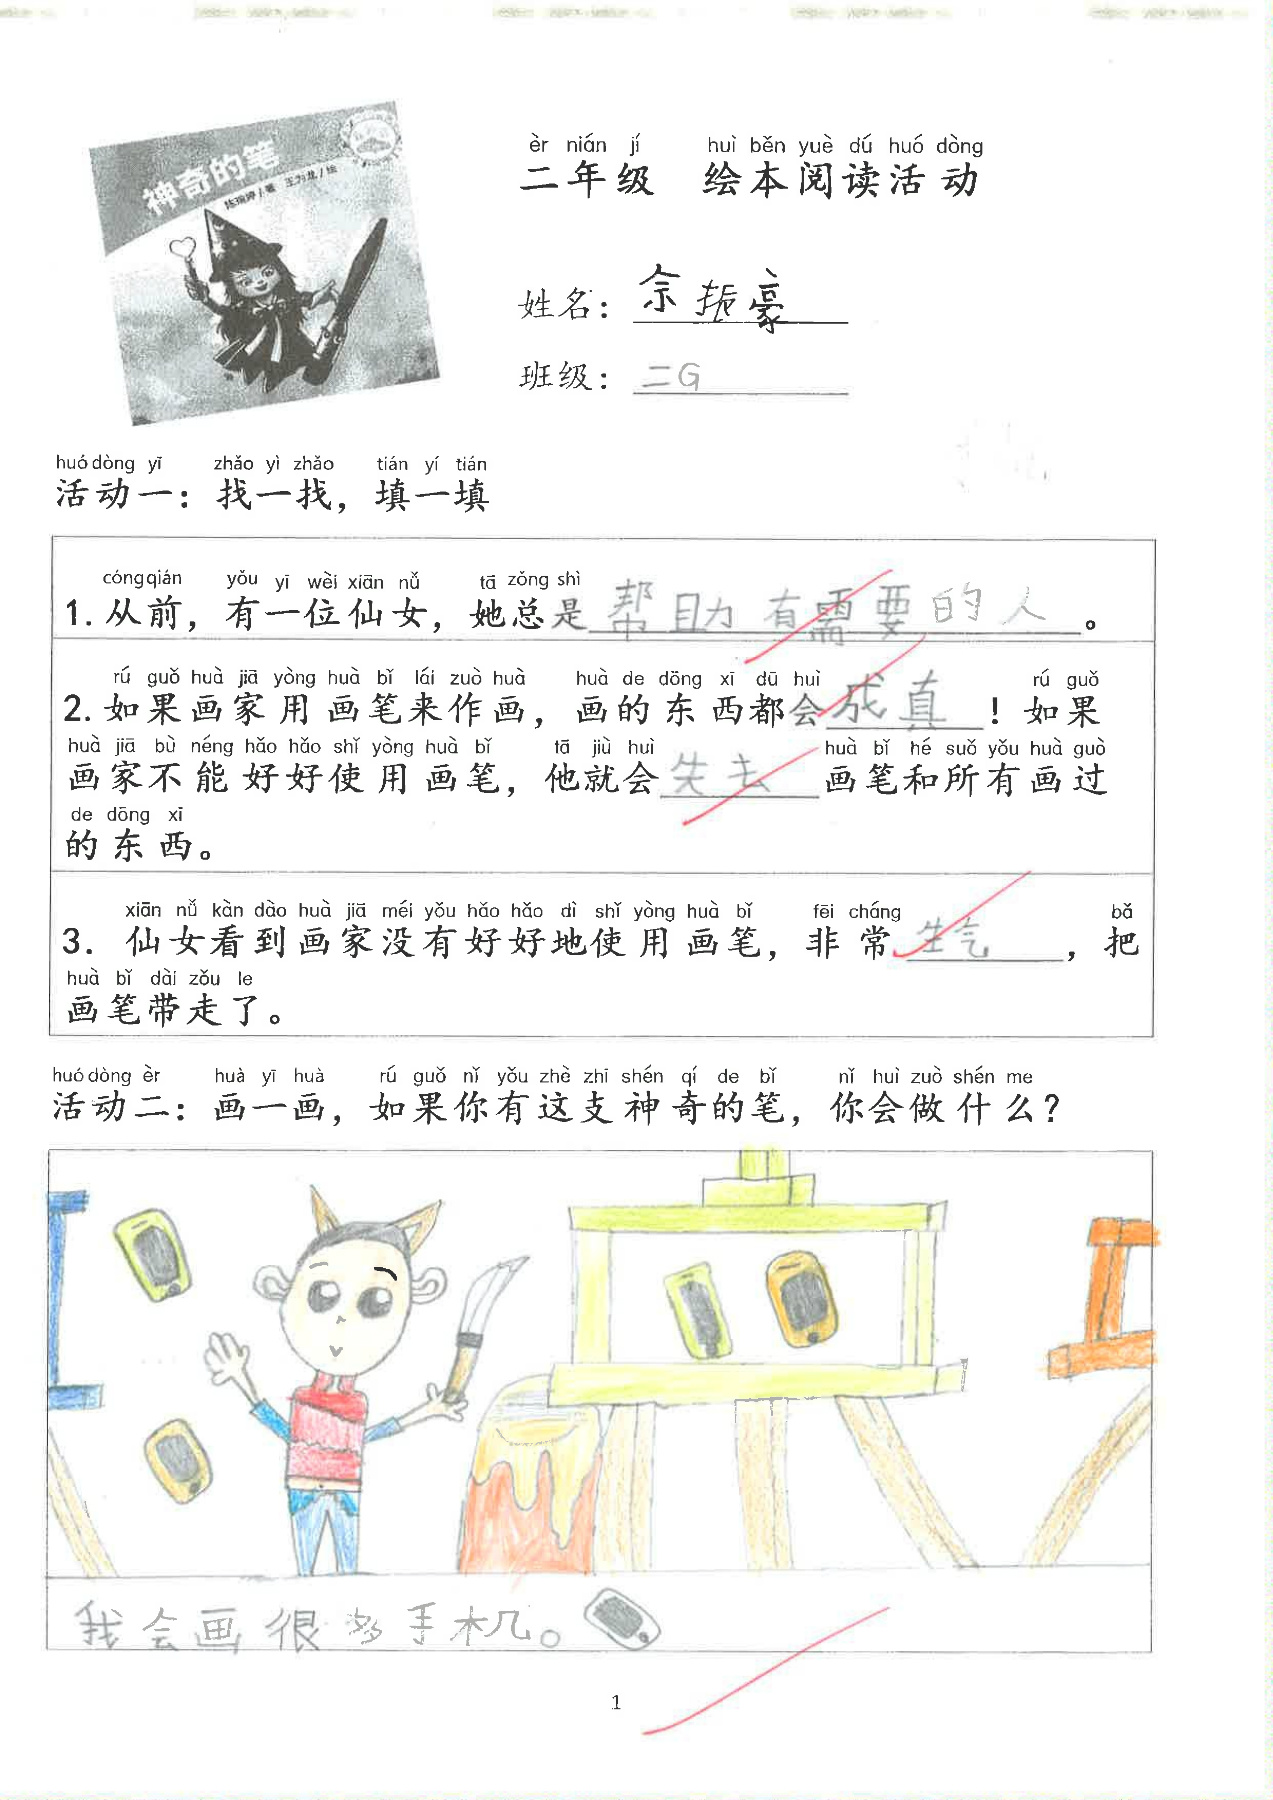 神奇的笔
陈琬婷/著 王为龙/绘
èr nián jí huì běn yuè dú huó dòng
二年级 绘本阅读活动
姓名：佘振豪
班级：二G
huó dòng yī zhǎo yì zhǎo tián yí tián
活动一：找一找，填一填
cóng qián yǒu yī wèi xiān nǚ tā zǒng shì
1. 从前，有一位仙女，她总是帮助有需要的人。
rú guǒ huà jiā yòng huà bǐ lái zuò huà huà de dōng xī dū huì rú guǒ
2. 如果画家用画笔来作画，画的东西都会成真！如果
huà jiā bù néng hǎo hǎo shǐ yòng huà bǐ tā jiù huì huà bǐ hé suǒ yǒu huà guò
画家不能好好使用画笔，他就会失去画笔和所有画过
de dōng xi
的东西。
xiān nǚ kàn dào huà jiā méi yǒu hǎo hǎo dì shǐ yòng huà bǐ fēi cháng bǎ
3. 仙女看到画家没有好好地使用画笔，非常生气，把
huà bǐ dài zǒu le
画笔带走了。
huó dòng èr huà yī huà rú guǒ nǐ yǒu zhè zhī shén qí de bǐ nǐ huì zuò shén me
活动二：画一画，如果你有这支神奇的笔，你会做什么？
我会画很多手机。
1